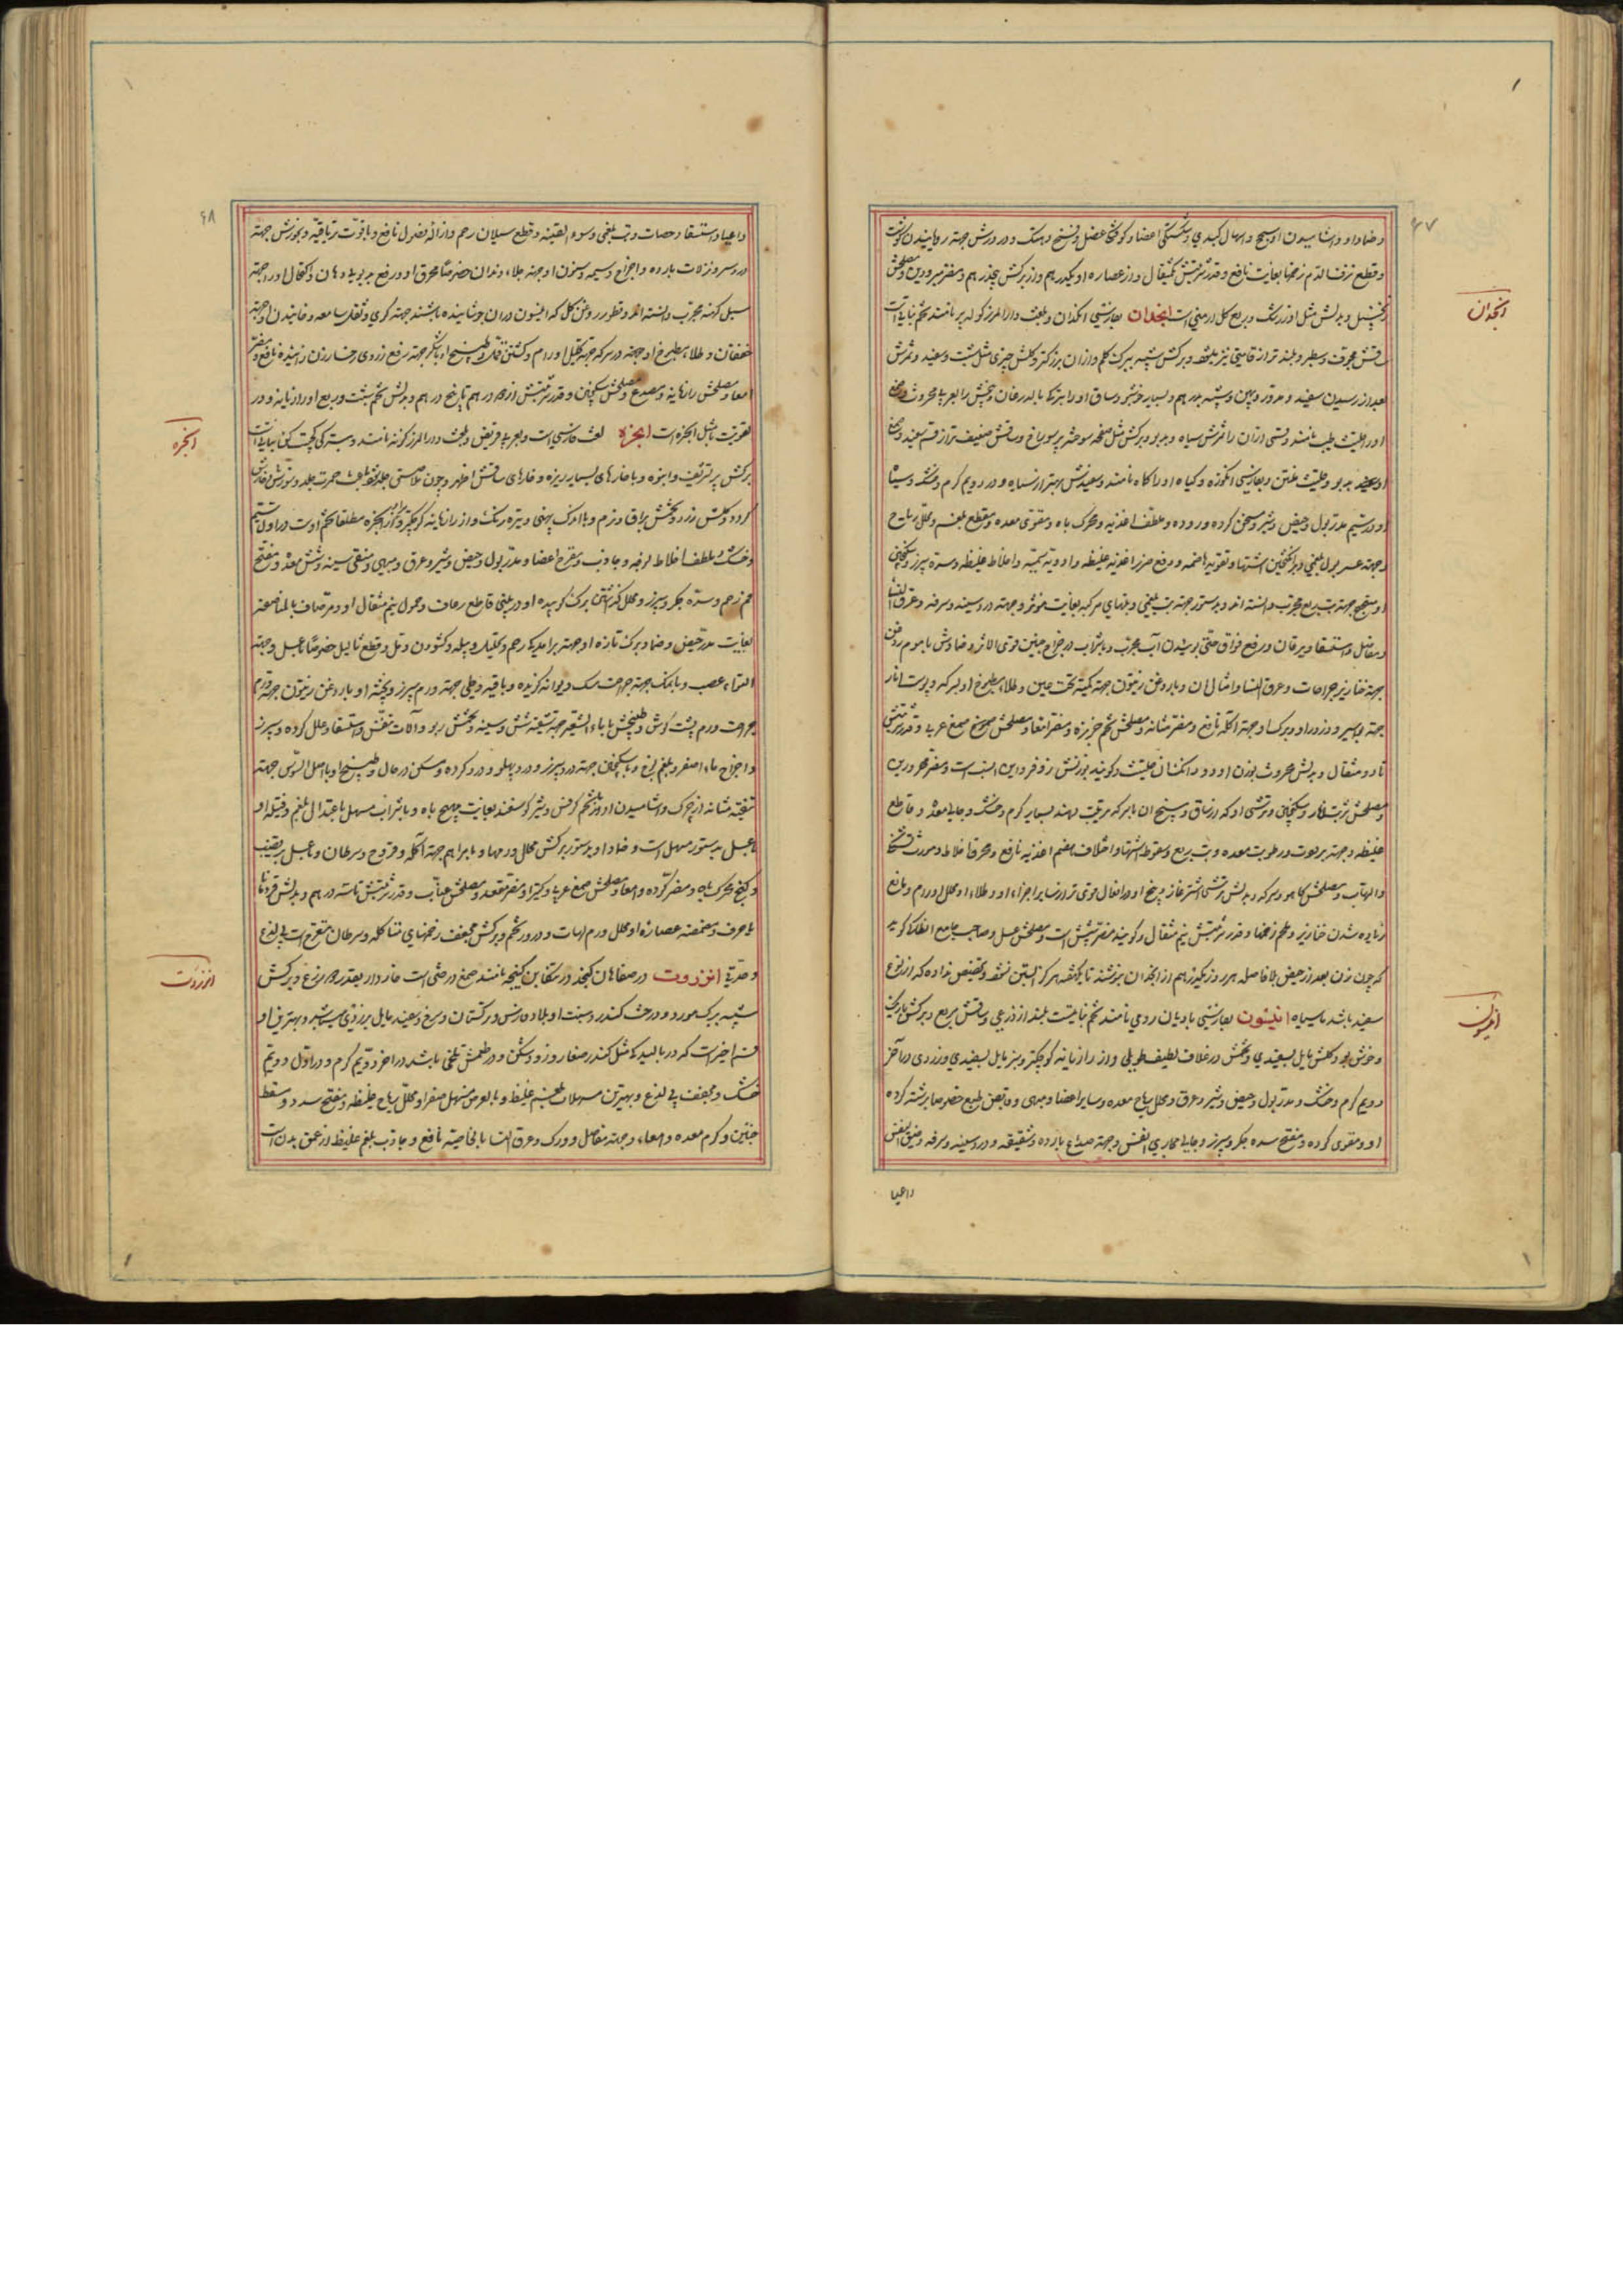 ۶۷
و ضماد او و آشامیدن او سحج و اسهال کبدی و شکستگی اعضا و کوفتگی عضل و فسخ و هتک و ذرورش جهته رویانیدن گوشت
و قطع نزف الدم زخمها بغایت نافع و قدر شربتش یکمثقال و از عصاره او یکدرهم و از برکش پنجدرهم و مضر مبرودین و مصلحش
زنجبیل و بدلش مثل او زرشک و بربع گل ارمنی است انجدان بفارسی انگدان و بلغت دارالمرز کوله پر نامند تخم نباتیست
انجدان
ساقش مجوف و سطبر و بلندتر از قامتی نیز میباشد و برکش شبیه ببرک کلم و از ان بزرکتر و کلش چتری مثل شبت و سفید و ثمرش
بعد از رسیدن سفید و مدور و پهن و شبیه بدرهم و بسیار خوشبو و ساق او را بترکی بالدرغان و بیخش را بعربی محروث و صمغ
او را حلتیت طیب نامند و قسمی از ان را ثمرش سیاه و بدبو و برکش مثل صفحه سوخته پر سوراخ و ساقش ضعیف تر از قسم سفید و صمغ
او بدبو و حلتیت منتن و بفارسی انکوزه و کیاه او را کاه نامند و سفیدش بهتر از سیاه و در دویم گرم و خشک و سیاه
او در سیم مدر بول و حیض و شیر و مسخن گرده و روده و ملطف اغذیه و محرک باه و مقوی معده و مقطع بلغم و محلل ریاح
و جهته عسر بول بلغمی و برانگیختن اشتها و تقویه هاضمه و دفع ضرر اغذیه غلیظه و ادویه سمیه و اخلاط غلیظه و سده سپرز و سکنجبین
و مفاصل و استسقا و یرقان و رفع فواق حتی بوئیدن آب مجرب و با شراب در اخراج جنین قوی الاثر و ضمادش با موم روغن
جهته خنازیر و جراحات و عرق النسا و امثال ان و با روغن زیتون جهته کمنه تحت عین و طلاء مطبوخ او با سرکه و پوست انار
جهته بواسیر و ذرور او و برک او جهته آکله نافع و مضر مثانه و مصلحش تخم خربزه و مضر امعا و مصلحش صمغ عربی و قدر شربتش
تا دو مثقال و بدلش محروث بوزن او و دو دانک ان حلتیت و کویند بوزنش زوفرا و این انسب است و مضر محرورین
و مصلحش شربت انار و سکنجبین و ترشی او که از ساق و بیخ ان با سرکه ترتیب دهند بسیار گرم و خشک و جالی معده و قاطع
غلیظه و جهته برودت و رطوبت معده و تب ربع و سقوط اشتها و اختلاف هضم اغذیه نافع و محرق اخلاط و مورث تشنج
و التهاب و مصلحش کاهو و سرکه و بدلش ترشی اشترغاز و بیخ او در افعال قوی تر از سایر اجزاء او و طلاء او محلل اورام و مانع
زیاده شدن خنازیر و ملحم زخمها و قدر شربتش نیم مثقال و کویند مضر شش است و مصلحش عسل و صاحب جامع انطاکی کوید
که چون زن بعد از حیض بلا فاصله هر روز یکدرهم از انجدان بنوشد تا یکهفته هرگز آبستن نشود و تخصیص نداده که از نوع
سفید باشد یا سیاه انیسون بفارسی بادیان رومی نامند تخم نباتیست بلند از ذرعی و ساقش مربع و برکش باریک
انیسون
و خوشبو و کلش مایل بسفیدی و تخمش در غلاف لطیف طویلی و از رازیانه کوچکتر و سبز مایل بسفیدی و زردی در آخر
دویم گرم و خشک و مدر بول و حیض و شیر و عرق و محلل ریاح معده و سایر اعضا و مبهی و قابض طبع خصوصا برشته کرده
او و مقوی گرده و مفتح سده جگر و سپرز و جالی مجاری النفس و جهته صداع بارده و شقیقه و درد سینه و سرفه و ضیق النفس
واعیا
۶۸
و اعیا و استسقا و حصات و تب بلغمی و سوء القنیه و قطع سیلان رحم و ازاله فضول نافع و با قوت تریاقیه و بخورش جهته
درد سر و نزلات بارده و اخراج مشیمه و سنون او جهته جلاء دندان خصوصا محرق او و رفع بدبویی دهان و اکتحال او جهته
سبل کهنه مجرب دانسته اند و قطور روغن کل که انیسون در ان جوشانیده باشند جهته کری و ثقل سامعه و خائیدن او جهته
خفقان و طلاء مطبوخ او جهته درد سر که جهته تحلیل اورام و کشتن شپش و طبیخ او با شکر جهته رفع زردی رخسار زن زائیده نافع و مضر
امعا و مصلحش رازیانه و مصدع و مصلحش سکنجبین و قدر شربتش از دو درهم تا پنج درهم و بدلش تخم شبت و بربع او رازیانه و در
تقویت باه مثل انجره است انجره لغت فارسی است و بعربی قریض و بلغت دارالمرز کزنه نامند و بترکی کجت کن نباتیست
انجره
برکش پر تشریف و انبوه و با خارهای بسیار ریزه و خارهای ساقش اظهر و چون ملاصق جلد شود باعث حمرت جلد و سوزش و خارش
کردد و کلش زرد و تخمش براق و نرم و با اندک پهنی و تیره رنک و از رازیانه کوچکتر و مراد از انجره مطلقا تخم اوست در اول سیم
و خشک و ملطف اخلاط لزجه و جاذب و مقرح اعضا و مدر بول و حیض و شیر و عرق و مبهی و منقی سینه و شش معده و مفتح
فم رحم و سده جگر و سپرز و محلل کذاشتن برک کوبیده او در بینی قاطع رعاف و حمول نیم مثقال او و مر صاف بالمناصفه
بغایت مدر حیض و ضماد برک تازه او جهته برامدکی رحم و تحلیل دبیله و کشودن دمل و قطع ثالیل خصوصا با عسل و جهته
التواء عصب و با نمک جهته جراحت سک دیوانه گزیده و با قیروطی جهته ورم سپرز و پخته او با روغن زیتون جهته ورم
جراحت و ورم پشت گوش و طبیخش با ماء الشعیر جهته تنقیه شش و سینه و تخمش ربو و آلات تنفس و استسقا و علل گرده و سپرز
و اخراج ماء اصفر و بلغم لزج و با سکنجبین جهته درد سپرز و درد پهلو و درد گرده و مسکن در حال و طبیخ او با اصل السوس جهته
تنقیه مثانه از چرک و آشامیدن او با تخم کرفس و شیر کوسفند بغایت مهیج باه و با شراب مسهل باعتدال بلغم و فتیله او
با عسل بدستور مسهل است و ضماد او بدستور برکش محلل ورمها و با مراهم جهته آکله و قروح و سرطان و با عسل بر قضیب
و کنج محرک باه و مضر گرده و امعا و مصلحش صمغ عربی و کتیرا و مضر مقعد و مصلحش عناب و قدر شربتش تا سه درهم و بدلش قردمانا
یا حرف و مضمضه عصاره او محلل ورم لهات و ذرور تخم و برکش مجفف زخمهای متاکله و سرطان متقرح است بی لذع
و حدتی انزروت در صفاهان کنجد و در تنکابن کنیجه نامند صمغ درختی است خاردار بقدر دو ذرع و برکش
انزروت
شبیه ببرک مورد و درخت کندر و منبت او بلاد فارس و ترکستان و سرخ و سفید مایل بزردی میباشد و بهترین او
قسم اخیر است که در بالیدکی مثل کندر صغار و زود شکن و در طعمش تلخی باشد در اخر دویم گرم و در اول دویم
خشک و مجفف بی لذع و بهترین مسهلات بلغم غلیظ و بالعرض مسهل صفرا و محلل ریاح غلیظه و مفتح سدد و مسقط
جنین و کرم معده و امعاء و جهته مفاصل و ورک و عرق النسا بالخاصیه نافع و جاذب بلغم غلیظ از عمق بدن است